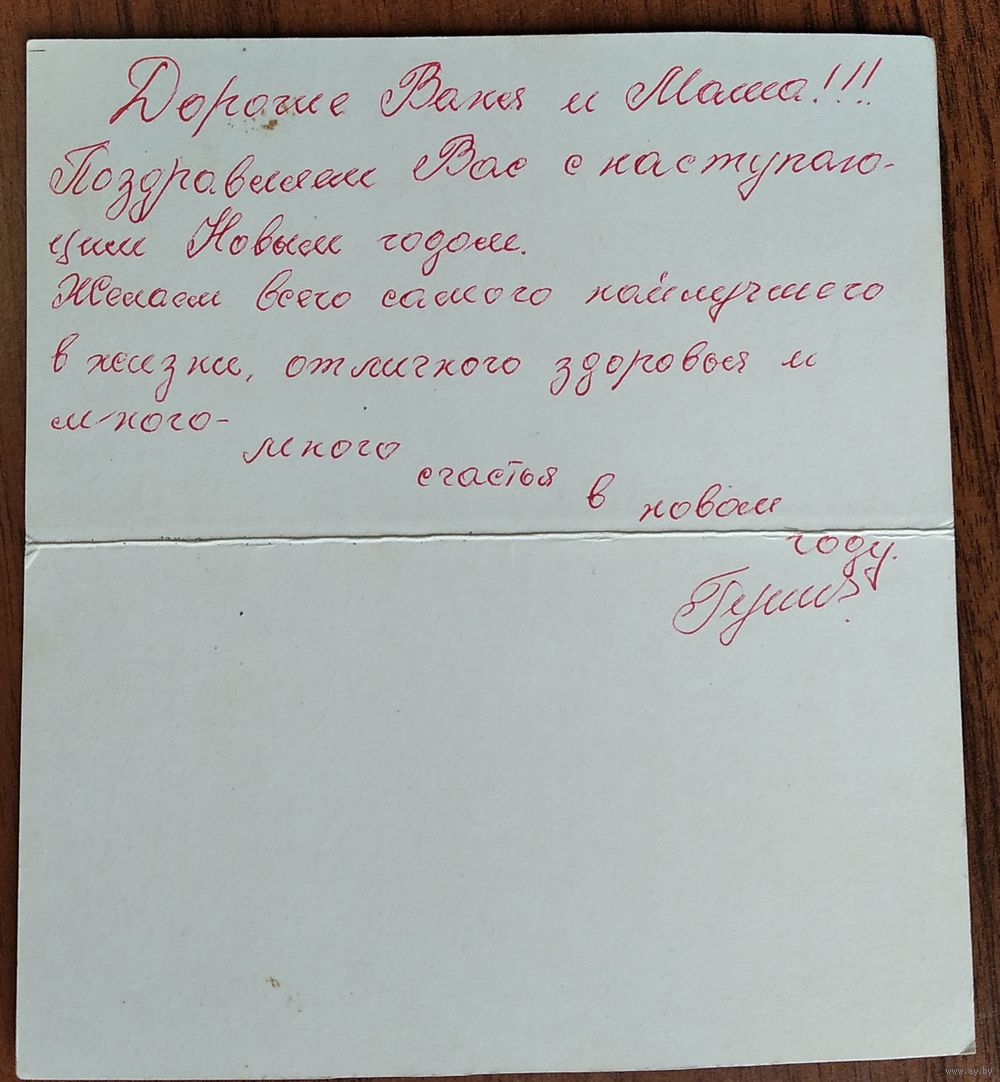 Дорогие Ваня и Маша!!!
Поздравляем Вас с наступаю-
щим Новым годом.
Желаем всего самого найлучшего
в жизни, отличного здоровья и
много-
много
счастья
в
новом
году.
www.ay.by